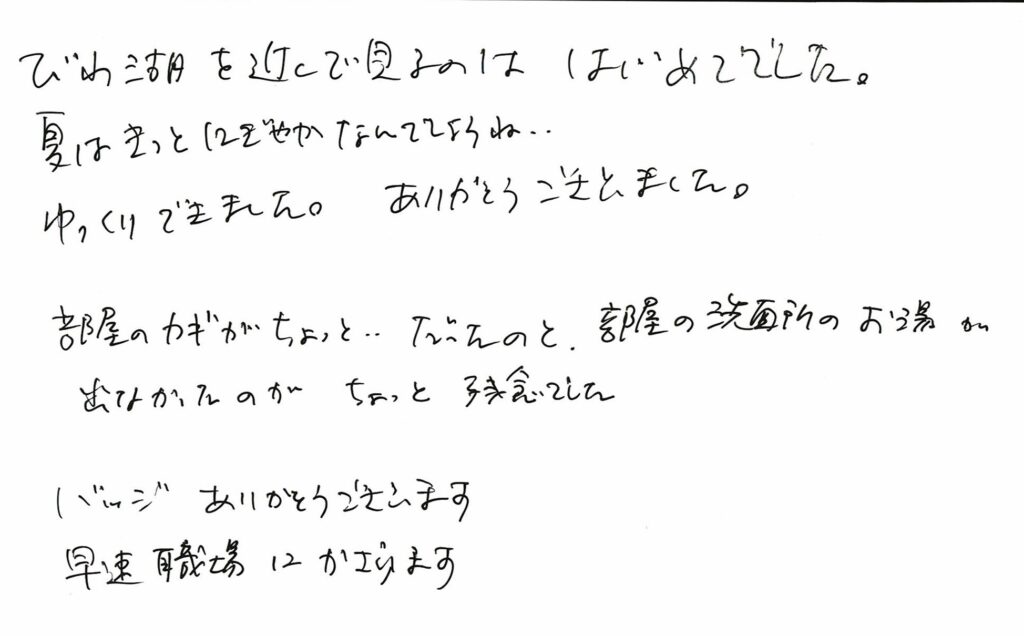 びわ湖を近くで見るのは はじめてでした。
夏はきっとにぎやかなんでしょうね‥
ゆっくりできました。 ありがとうございました。
部屋のカギがちょっと‥ だったのと、部屋の洗面所のお湯が
出なかったのが ちょっと 残念でした
バッジ ありがとうございます
早速 職場 に かざります